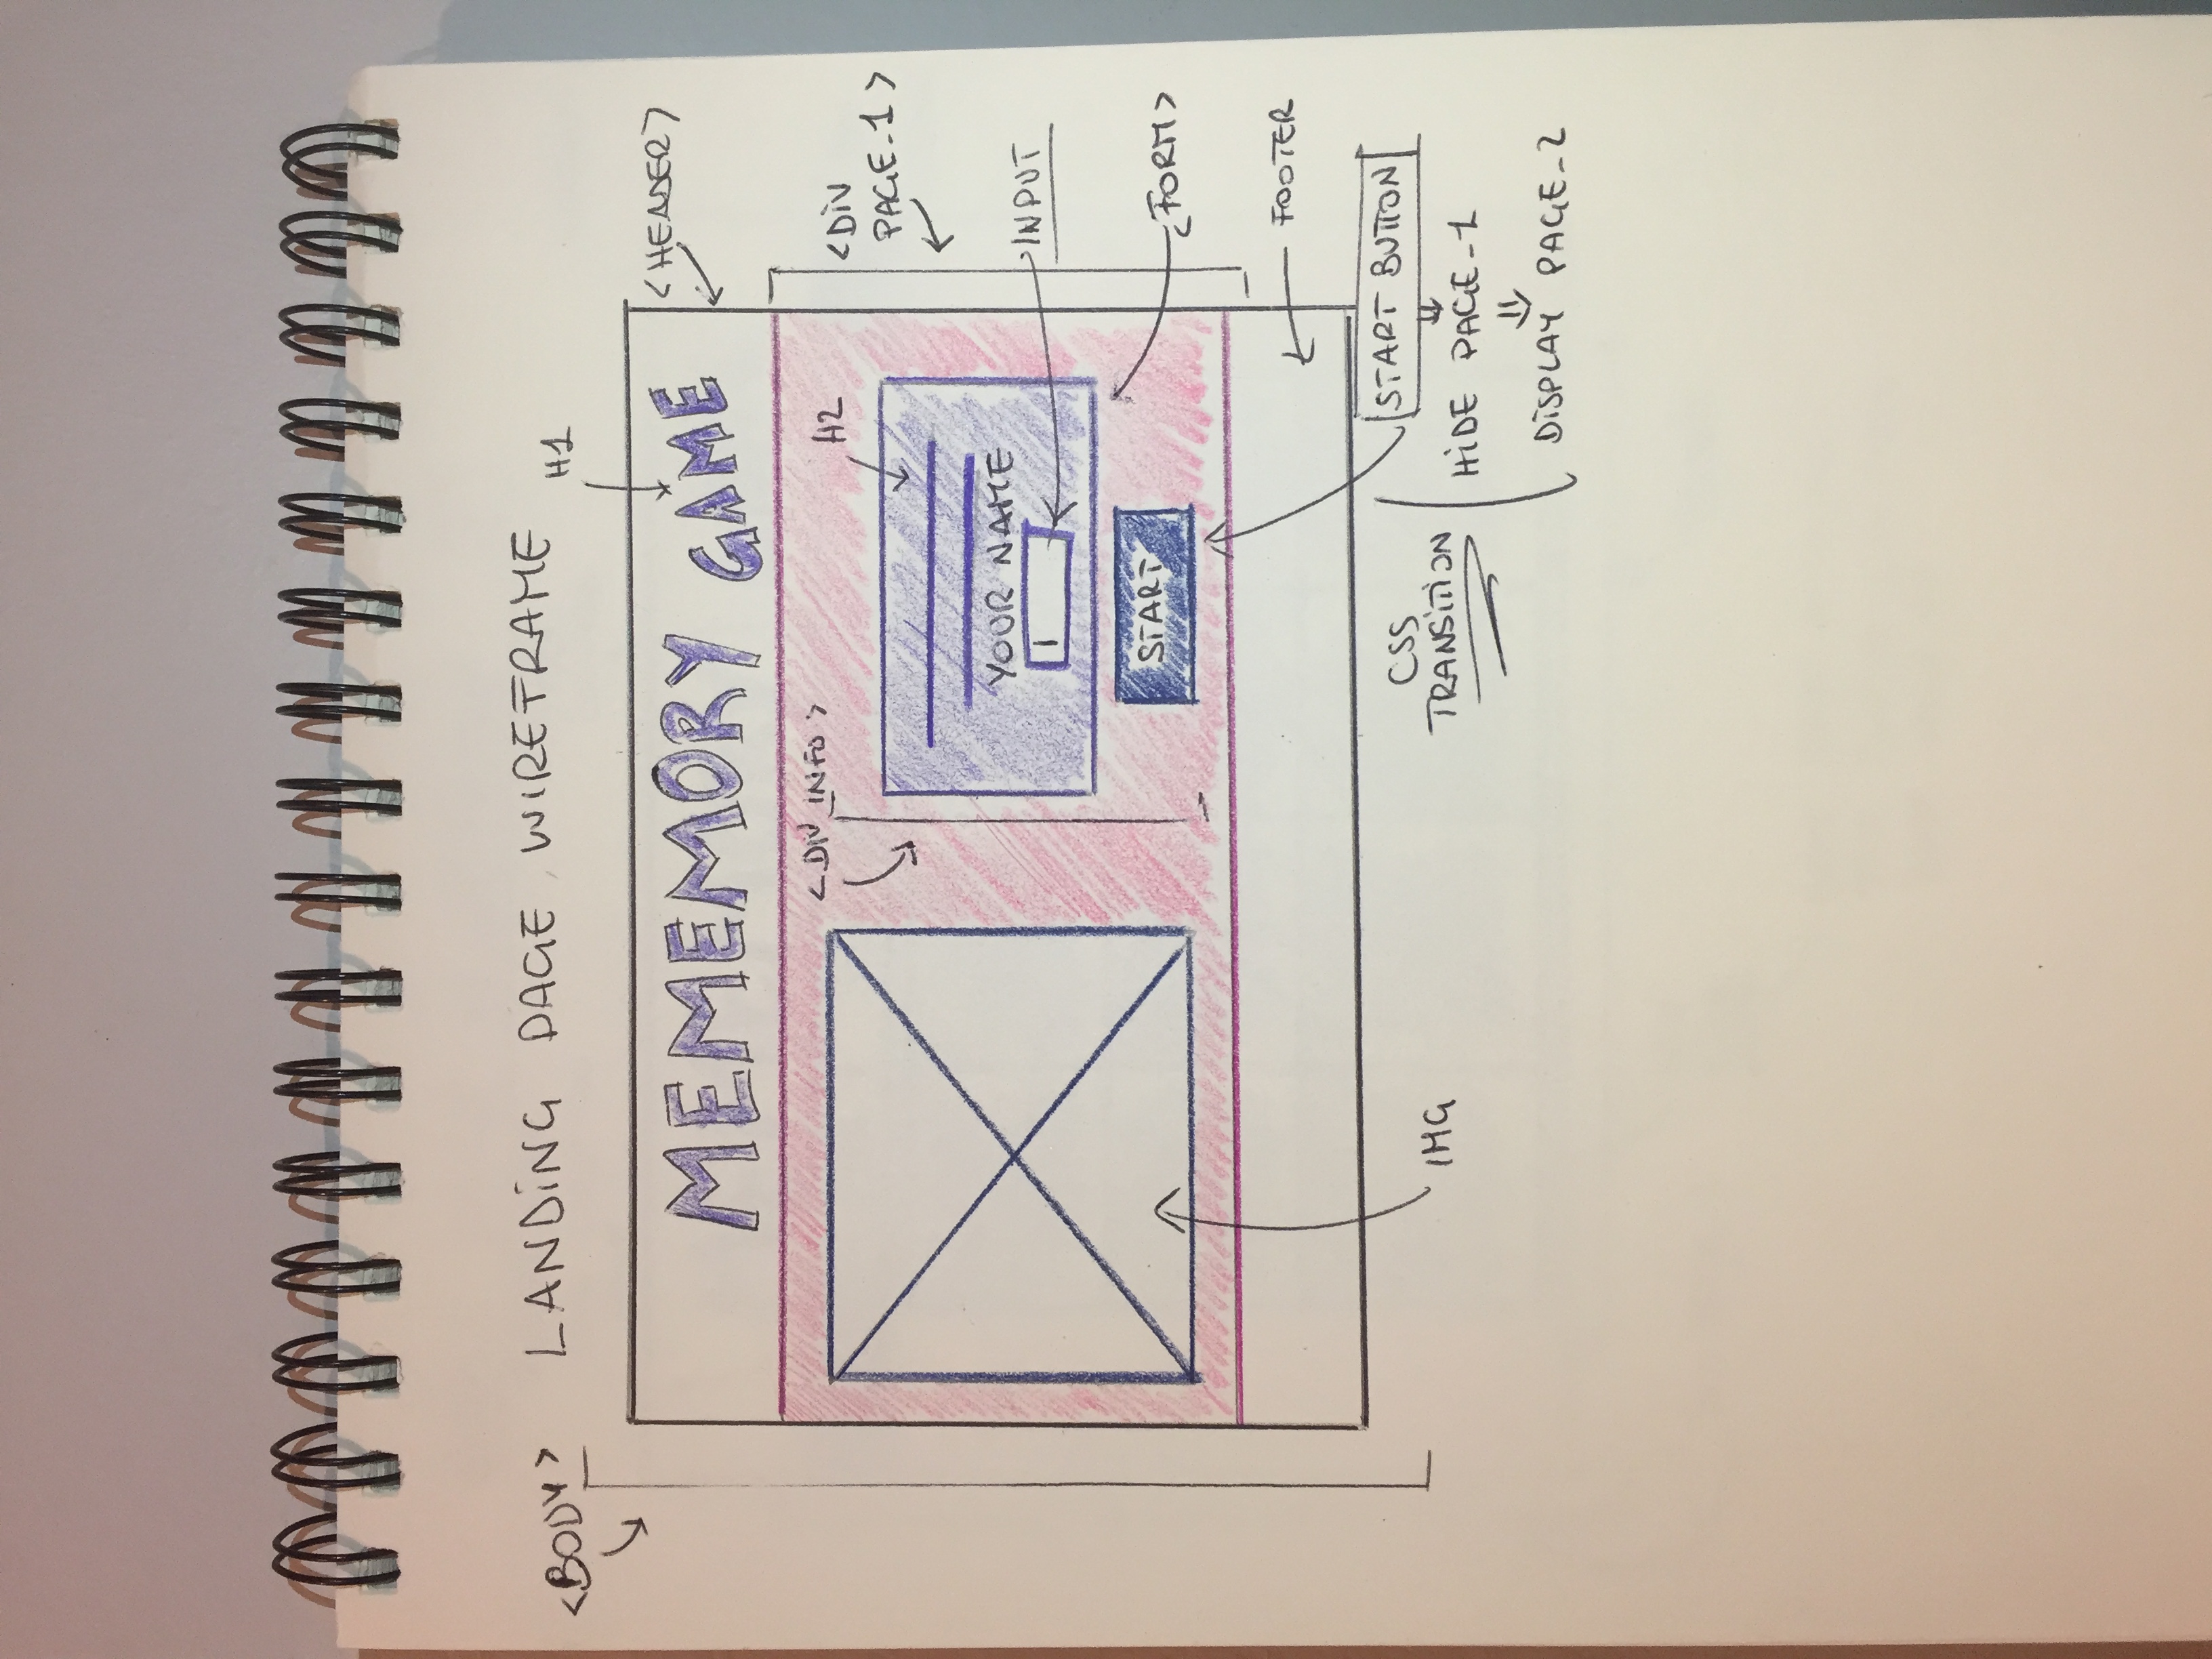 <BODY>
LANDING PAGE WIREFRAME
H1
MEMEMORY GAME
<HEADER>
<DIV INFO>
H2
<DIV
PAGE_1>
YOUR NAME
INPUT
START
<FORM>
FOOTER
IMG
CSS
TRANSITION
START BUTTON
HIDE PAGE_1
DISPLAY PAGE_2